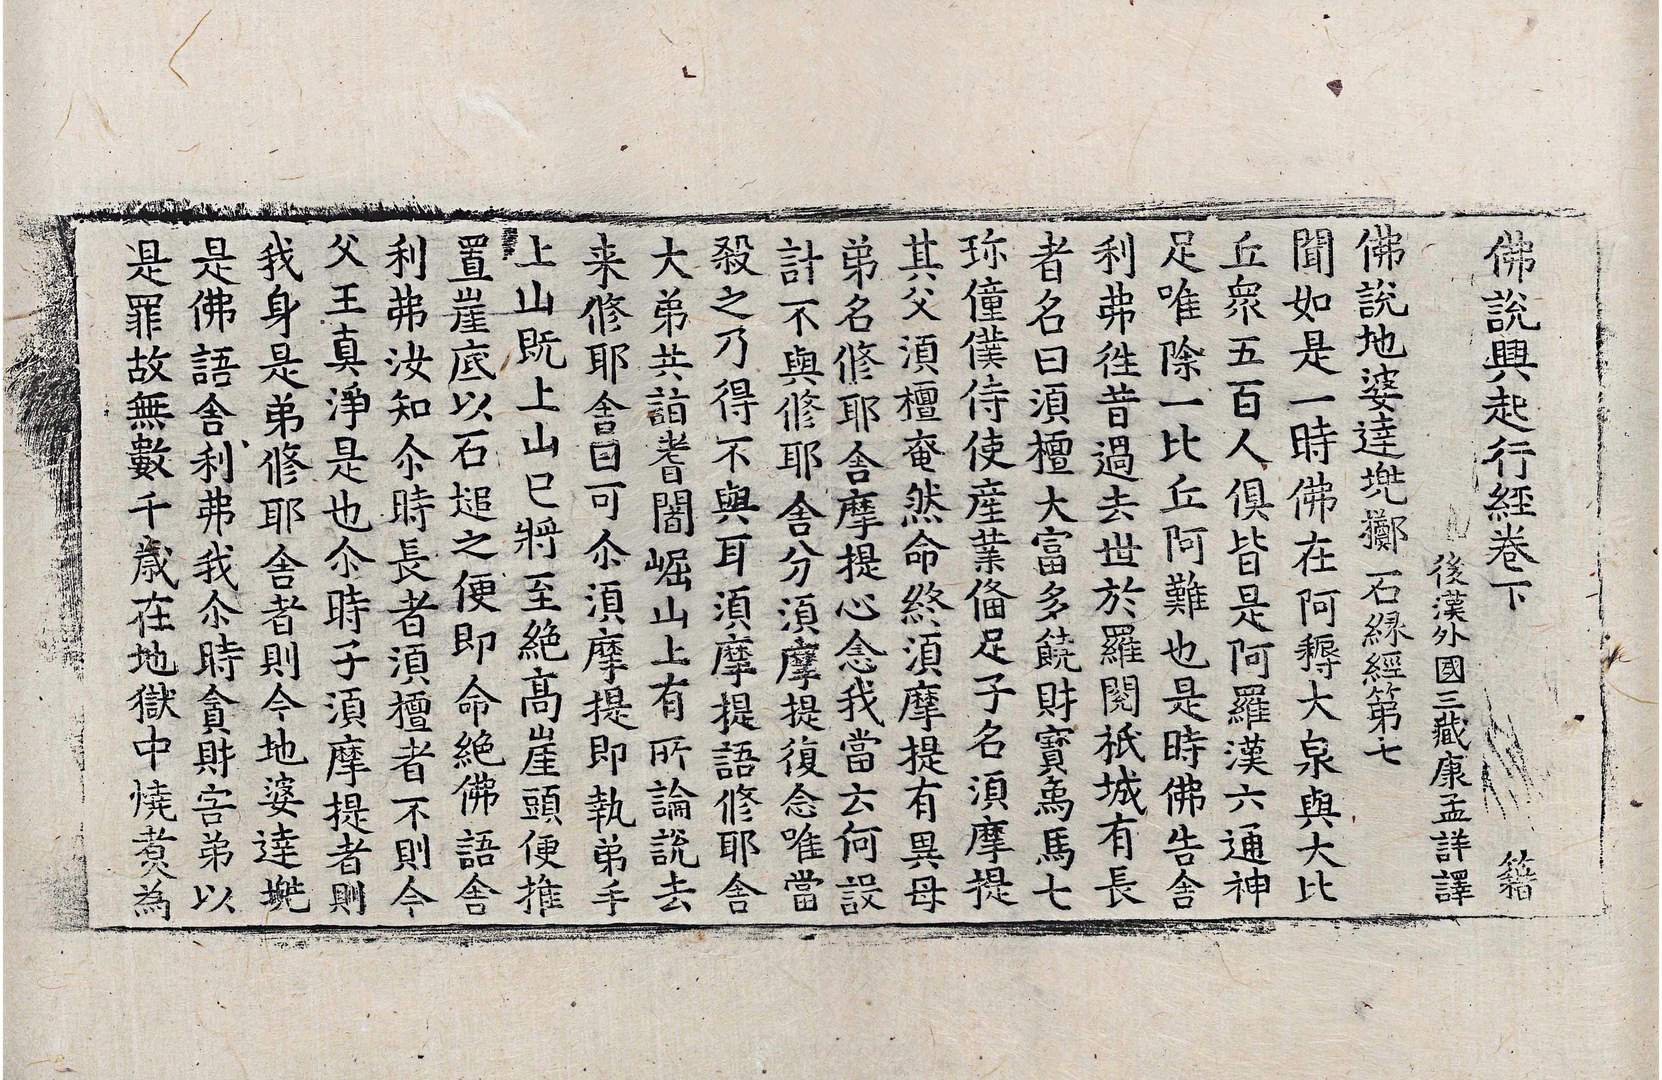 佛說興起行經卷下 籍
後漢外國三藏康孟詳譯
佛說地婆達兠擲石緣經第七
聞如是一時佛在阿耨大泉與大比
丘眾五百人俱皆是阿羅漢六通神
足唯除一比丘阿難也是時佛告舍
利弗徃昔過去世於羅閱祇城有長
者名曰須檀大富多饒財寶為馬七
珎僮僕侍使產業俻足子名須摩提
其父須檀奄然命終須摩提有異母
弟名修耶舍摩提心念我當云何設
計不與修耶舍分須摩提復念唯當
殺之乃得不與耳須摩提語修耶舍
大弟共詣耆闍崛山上有所論說去
来修耶舍曰可尒須摩提即執弟手
上山既上山已將至絕高崖頭便推
置崖底以石塠之便即命絕佛語舍
利弗汝知尒時長者須檀者不則今
父王真淨是也尒時子須摩提者則
我身是弟修耶舍者則今地婆達兠
是佛語舍利弗我尒時貪財害弟以
是罪故無數千歲在地獄中燒煮為